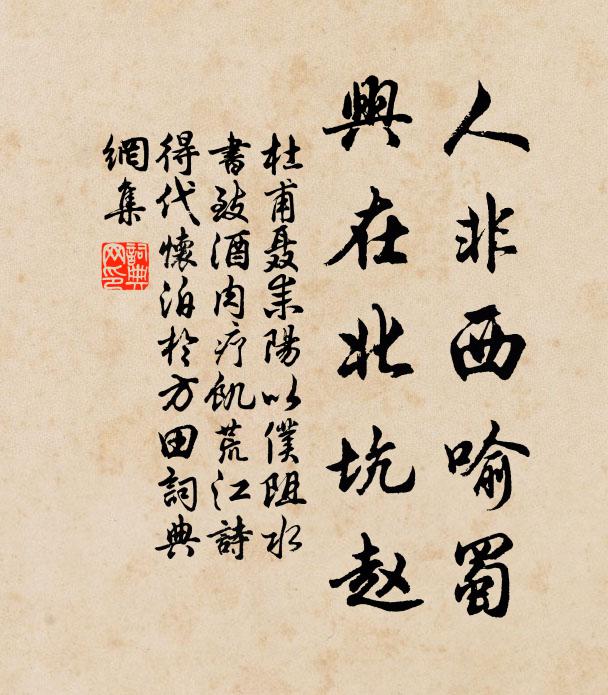 人非西喻蜀
興在北坑赵
杜甫聂耒陽以僕阻水
書致酒肉疗飢荒江詩
得代懷泊於方田詞典
網集
詞典
网印